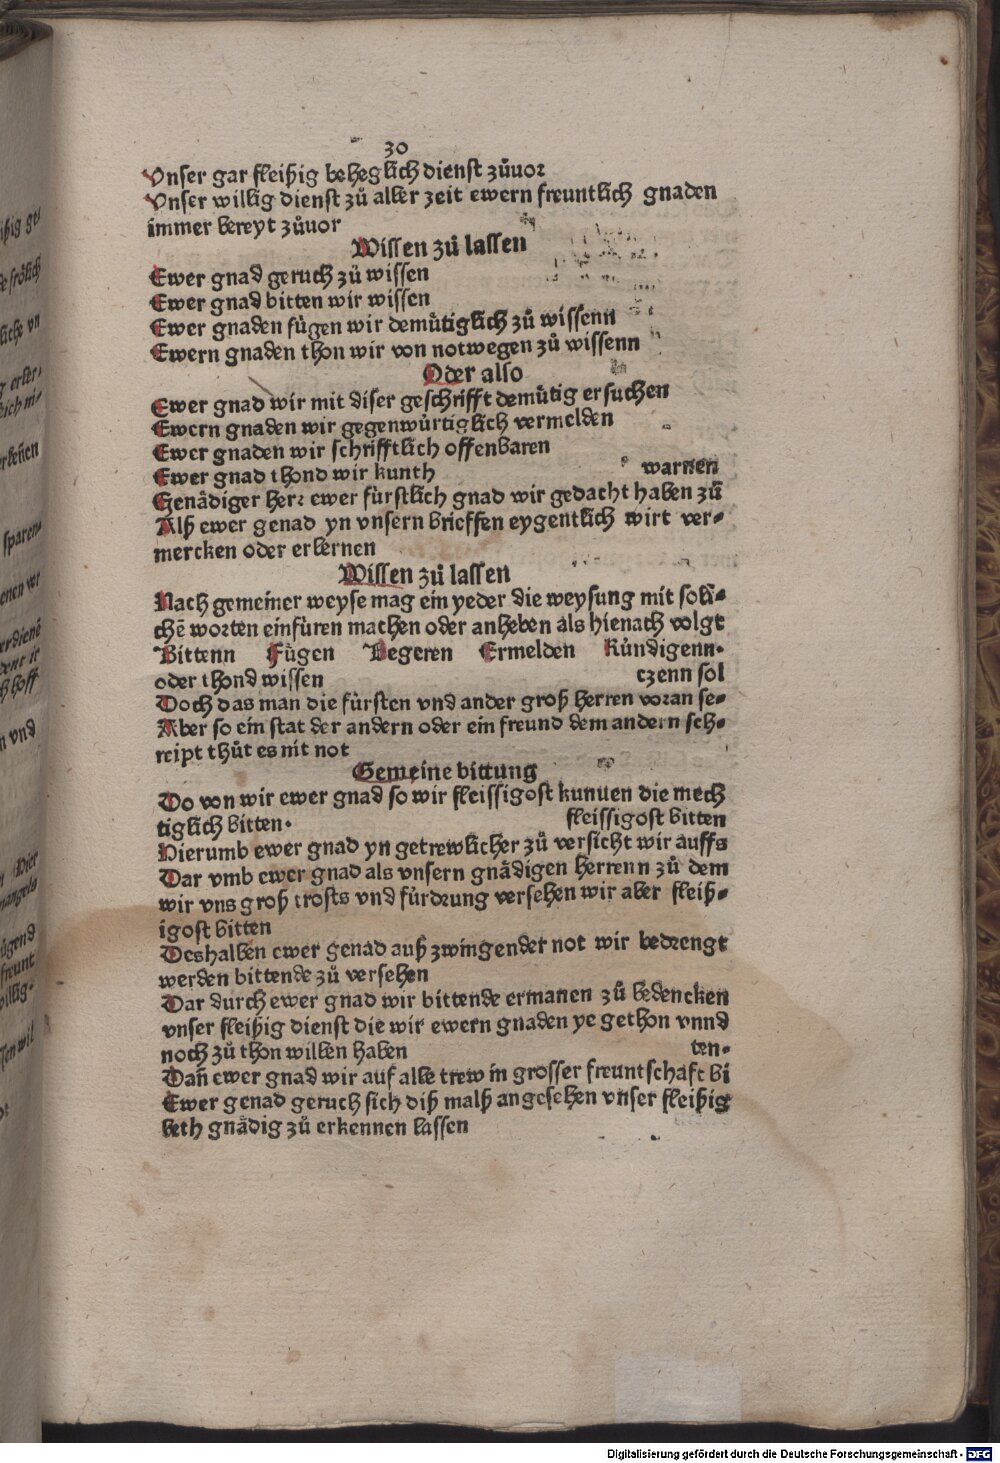 30
Vnser gar fleißig beheglich dienst zůuor
Vnser willig dienst zů aller zeit ewern freuntlich gnaden
immer bereyt zůuor
Wissen zů lassen
Ewer gnad geruch zů wissen
Ewer gnad bitten wir wissen
Ewer gnaden fůgen wir demůtiglich zů wissenn
Ewern gnaden thon wir von notwegen zů wissenn
Oder also
Ewer gnad wir mit diser geschrifft demůtig ersuchen
Ewern gnaden wir gegenwůrtiglich vermelden
Ewer gnaden wir schrifftlich offenbaren
Ewer gnad thond wir kunth warnen
Genådiger herr ewer fürstlich gnad wir gedacht haben zů
Alß ewer genad yn vnsern brieffen eygentlich wirt ver-
mercken oder erlernen
Wissen zů lassen
Nach gemeiner weyse mag ein yeder die weysung mit soli-
chē worten einfüren machen oder anheben als hienach volgt
Bittenn Fůgen Begeren Ermelden Kůndigenn.
oder thond wissen czenn sol
Doch das man die fürsten vnd ander groß herren voran se-
Aber so ein stat der andern oder ein freund dem andern sch-
reipt thůt es nit not
Gemeine bittung
Do von wir ewer gnad so wir fleissigost kunuen die mech
tiglich bitten. fleissigost bitten
Hierumb ewer gnad yn getrewlicher zů versicht wir auffs
Dar vmb ewer gnad als vnsern gnådigen herrenn zů dem
wir vns groß trosts vnd fůrdrung versehen wir aber fleiß-
igost bitten
Deshalben ewer genad auß zwingender not wir bedrengt
werden bittende zů versehen
Dar durch ewer gnad wir bittende ermanen zů bedencken
vnser fleißig dienst die wir ewern gnaden ye gethon vnnd
noch zů thon willen haben ten.
Dañ ewer gnad wir auf alle trew in grosser freuntschaft bi
Ewer genad geruch sich diß malß angesehen vnser fleißig
beth gnådig zů erkennen lassen
Digitalisierung gefördert durch die Deutsche Forschungsgemeinschaft - DFG